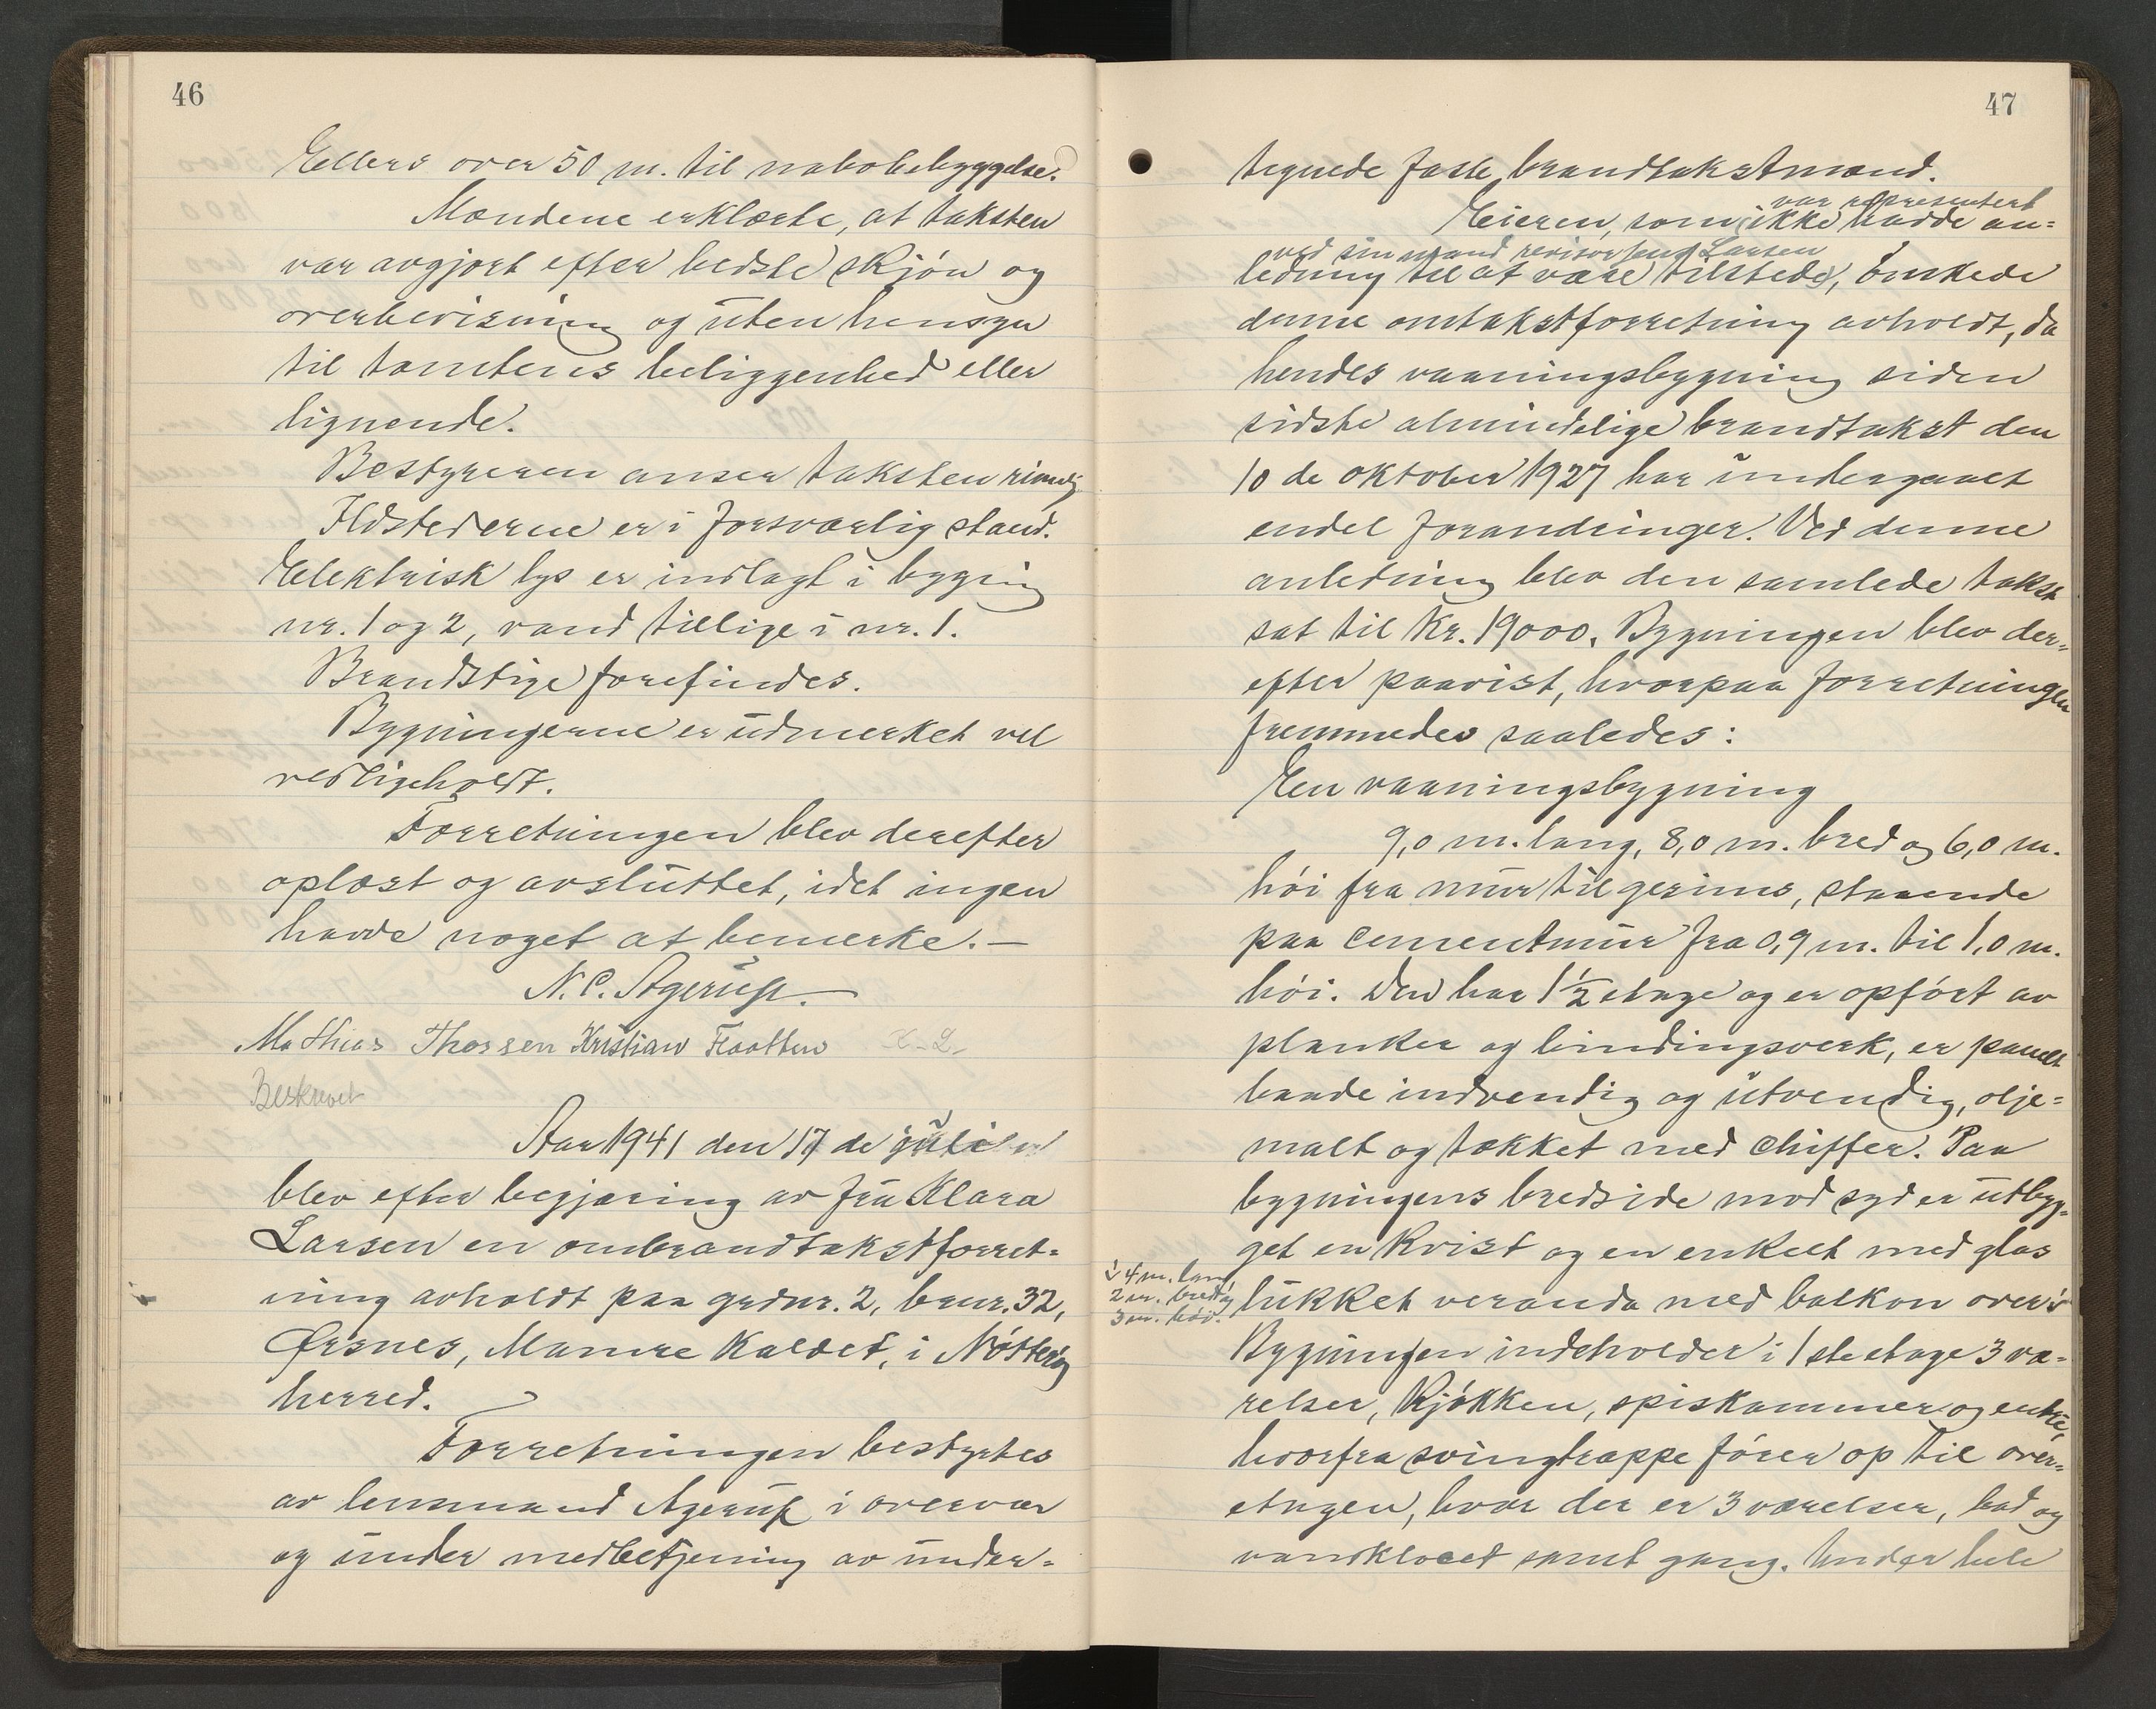 46
Ellers over 50 m. til nabobebyggelse.
Mændene erklærte, at taksten
var avgjort efter bedste skjøn og
overbevisning og uten hensyn
til tomtenes beliggenhed eller
lignende.
Bestyreren anser taksten rimelig
Ildstederne er i forsvarlig stand.
Elektrisk lys er indlagt i bygning
nr. 1 og 2, vand tillige i nr. 1.
Brandstige forefindes.
Bygningerne er udmerket vel
vedligeholdt.
Forretningen blev derefter
oplæst og avsluttet, idet ingen
havde noget at bemerke. —
N. C. Agerup.
Mathias Thorsen Kristian Flaatten
Beskrevet
Aar 1941 den 17 de juli
blev efter begjæring av fru Klara
Larsen en ombrandtakstforret-
ning avholdt paa grdnr. 2, brnr. 32,
Ørsnes, Mamre kaldet, i Nøtterøy
herred.
Forretningen bestyrtes
av lensmand Agerup i overvær
og under medbetjening av under-
47
tegnede faste brandtakstmænd.
var representert
Eieren, som ikke hadde an-
ved sin mand revisor Larsen
ledning til at være tilstede, ønskede
denne omtakstforretning avholdt, da
hendes vaaningsbygning siden
sidste almindelige brandtakst den
10 de oktober 1927 har undergaaet
endel forandringer. Ved denne
anledning blev den samlede takst
sat til Kr. 19000. Bygningen blev der-
efter paavist, hvorpaa forretningen
fremmedes saaledes:
En vaaningsbygning
9,0 m. lang, 8,0 m. bred og 6,0 m.
høi fra mur til gesims, staaende
paa cementmur fra 0,9 m. til 1,0 m.
høi. Den har 1½ etage og er opført av
planker og bindingsverk, er panelt
baade indvendig og utvendig, olje-
malt og tækket med chiffer. Paa
bygningens bredside mod syd er utbyg-
get en kvist og en enkelt med glas
4 m. lang
2 m. bred og
3 m. høi.
lukket veranda med balkon over
Bygningen indeholder i 1 ste etage 3 væ-
relser, kjøkken, spiskammer og entré,
hvorfra svingtrappe fører op til over-
etagen, hvor der er 3 værelser, bad og
vandklocet samt gang. Under hele